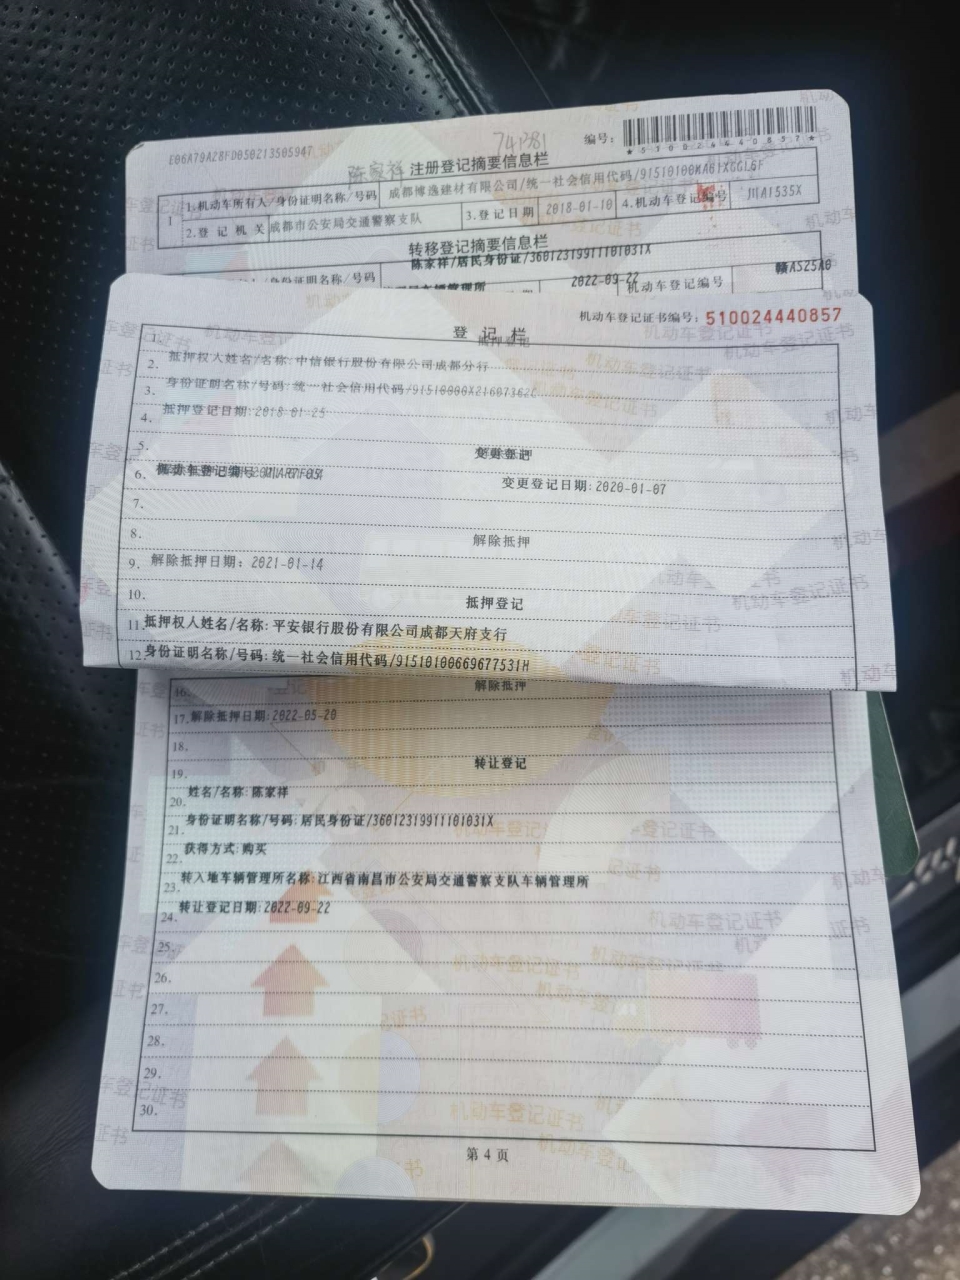 E06A79A28FD050213505947
741381
编号:
*510024440857*
陈家祥 注册登记摘要信息栏
1 1.机动车所有人/身份证明名称/号码 成都博逸建材有限公司/统一社会信用代码/91510100MA61XGGL6F
2.登记机关 成都市公安局交通警察支队 3.登记日期 2018-01-10 4.机动车登记编号 川A1535X
转移登记摘要信息栏
陈家祥/居民身份证/36012319911101031X
人/身份证明名称/号码
车辆管理所 2022-09-22 机动车登记编号 赣AS25A0
机动车登记证书编号: 510024440857
登记栏
1. 抵押登记
2. 抵押权人姓名/名称:中信银行股份有限公司成都分行
3. 身份证明名称/号码:统一社会信用代码/91510000X21607362C
4. 抵押登记日期:2018-01-25
5. 变更登记
6. 机动车登记编号
变更登记日期:2020-01-07
7.
8. 解除抵押
9. 解除抵押日期:2021-01-14
10. 抵押登记
11. 抵押权人姓名/名称:平安银行股份有限公司成都天府支行
12. 身份证明名称/号码:统一社会信用代码/91510100669677531H
16. 解除抵押
17. 解除抵押日期:2022-05-20
18.
19. 转让登记
20. 姓名/名称:陈家祥
21. 身份证明名称/号码:居民身份证/36012319911101031X
22. 获得方式:购买
23. 转入地车辆管理所名称:江西省南昌市公安局交通警察支队车辆管理所
24. 转让登记日期:2022-09-22
25.
26.
27.
28.
29.
30.
第 4 页